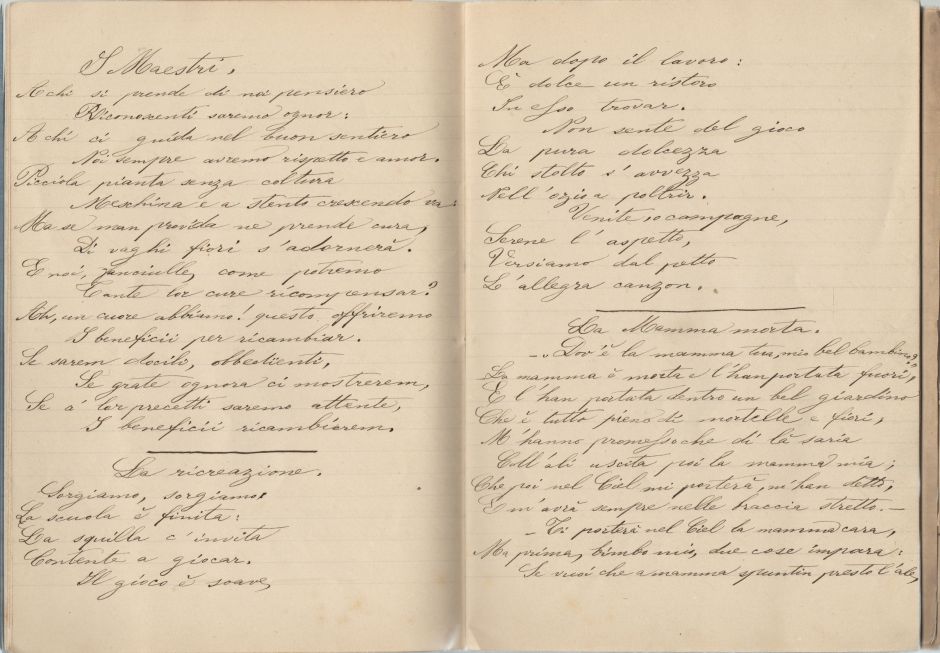 I Maestri.
A chi si prende di noi pensiero
Riconoscenti saremo ognor:
A chi ci guida nel buon sentiero
Noi sempre avremo rispetto e amor.
Picciola pianta senza coltura
Meschina e a stento crescendo va:
Ma se man provida ne prende cura,
Di vaghi fiori s'adornerà.
E noi, fanciulle, come potremo
Tante lor cure ricompensar?
Ah, un cuore abbiamo! questo offriremo
I beneficii per ricambiar.
Se sarem docili, obbedienti,
Se grate ognora ci mostrerem,
Se a' lor precetti saremo attente,
I beneficii ricambierem.
La ricreazione.
Sorgiamo, sorgiamo:
La scuola è finita:
La squilla c'invita
Contente a giocar.
Il gioco è soave,
Ma dopo il lavoro:
È dolce un ristoro
In esso trovar.
Non sente del gioco
La pura dolcezza
Chi stolto s'avvezza
Nell'ozio a poltrir.
Venite o compagne,
Serene l'aspetto,
Versiamo dal petto
L'allegra canzon.
La Mamma morta.
-„Dov'è la mamma tua, mio bel bambino?
La mamma è morta e l'han portata fuori,"
E l'han portata dentro un bel giardino
Che è tutto pieno di mortelle e fiori,
M'hanno promesso che di là saria
Coll'ali uscita poi la mamma mia;
Che poi nel Ciel mi porterà, m'han detto,
E m'avrà sempre nelle braccia stretto.-
- Ti porterà nel Ciel la mamma cara,
Ma prima, bimbo mio, due cose impara:
Se vuoi che a mamma spuntin presto l'ale,